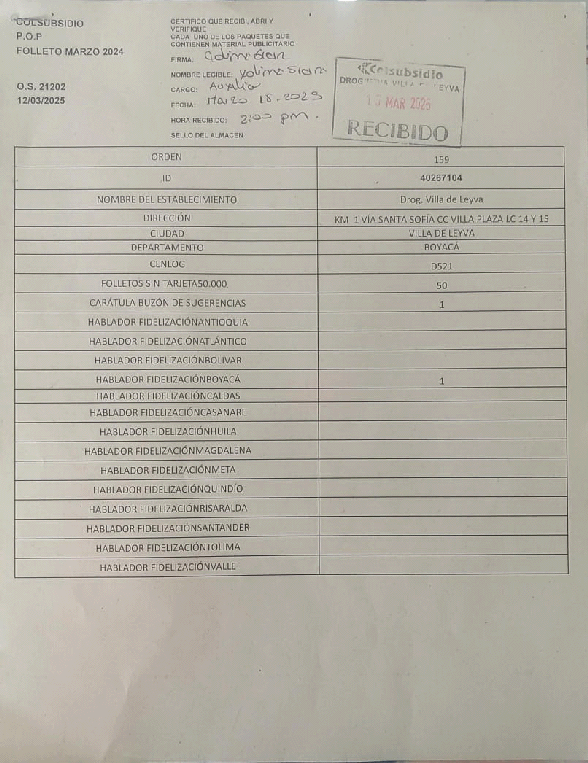 COLSUBSIDIO
P.O.P
FOLLETO MARZO 2024
O.S. 21202
12/03/2025
CERTIFICO QUE RECIBI, ABRI Y
VERIFIQUE
CADA UNO DE LOS PAQUETES QUE
CONTIENEN MATERIAL PUBLICITARIO
FIRMA:
NOMBRE LEGIBLE:
CARGO: Auxiliar
FECHA: Marzo 18. 2025
HORA RECIBIDO: 2:00 pm.
SELLO DEL ALMACEN
Colsubsidio
DROGUERIA VILLA DE LEYVA
MAR 2025
RECIBIDO
ORDEN 159
ID 40267104
NOMBRE DEL ESTABLECIMIENTO Drog. Villa de Leyva
DIRECCIÓN KM 1 VÍA SANTA SOFÍA CC VILLA PLAZA LC 14 Y 15
CIUDAD VILLA DE LEYVA
DEPARTAMENTO BOYACÁ
CENLOG D521
FOLLETOS SIN TARJETA50.000 50
CARÁTULA BUZÓN DE SUGERENCIAS 1
HABLADOR FIDELIZACIÓNANTIOQUIA
HABLADOR FIDELIZACIÓNATLÁNTICO
HABLADOR FIDELIZACIÓNBOLIVAR
HABLADOR FIDELIZACIÓNBOYACÁ 1
HABLADOR FIDELIZACIÓNCALDAS
HABLADOR FIDELIZACIÓNCASANARE
HABLADOR FIDELIZACIÓNHUILA
HABLADOR FIDELIZACIÓNMAGDALENA
HABLADOR FIDELIZACIÓNMETA
HABLADOR FIDELIZACIÓNQUINDÍO
HABLADOR FIDELIZACIÓNRISARALDA
HABLADOR FIDELIZACIÓNSANTANDER
HABLADOR FIDELIZACIÓNTOLIMA
HABLADOR FIDELIZACIÓNVALLE